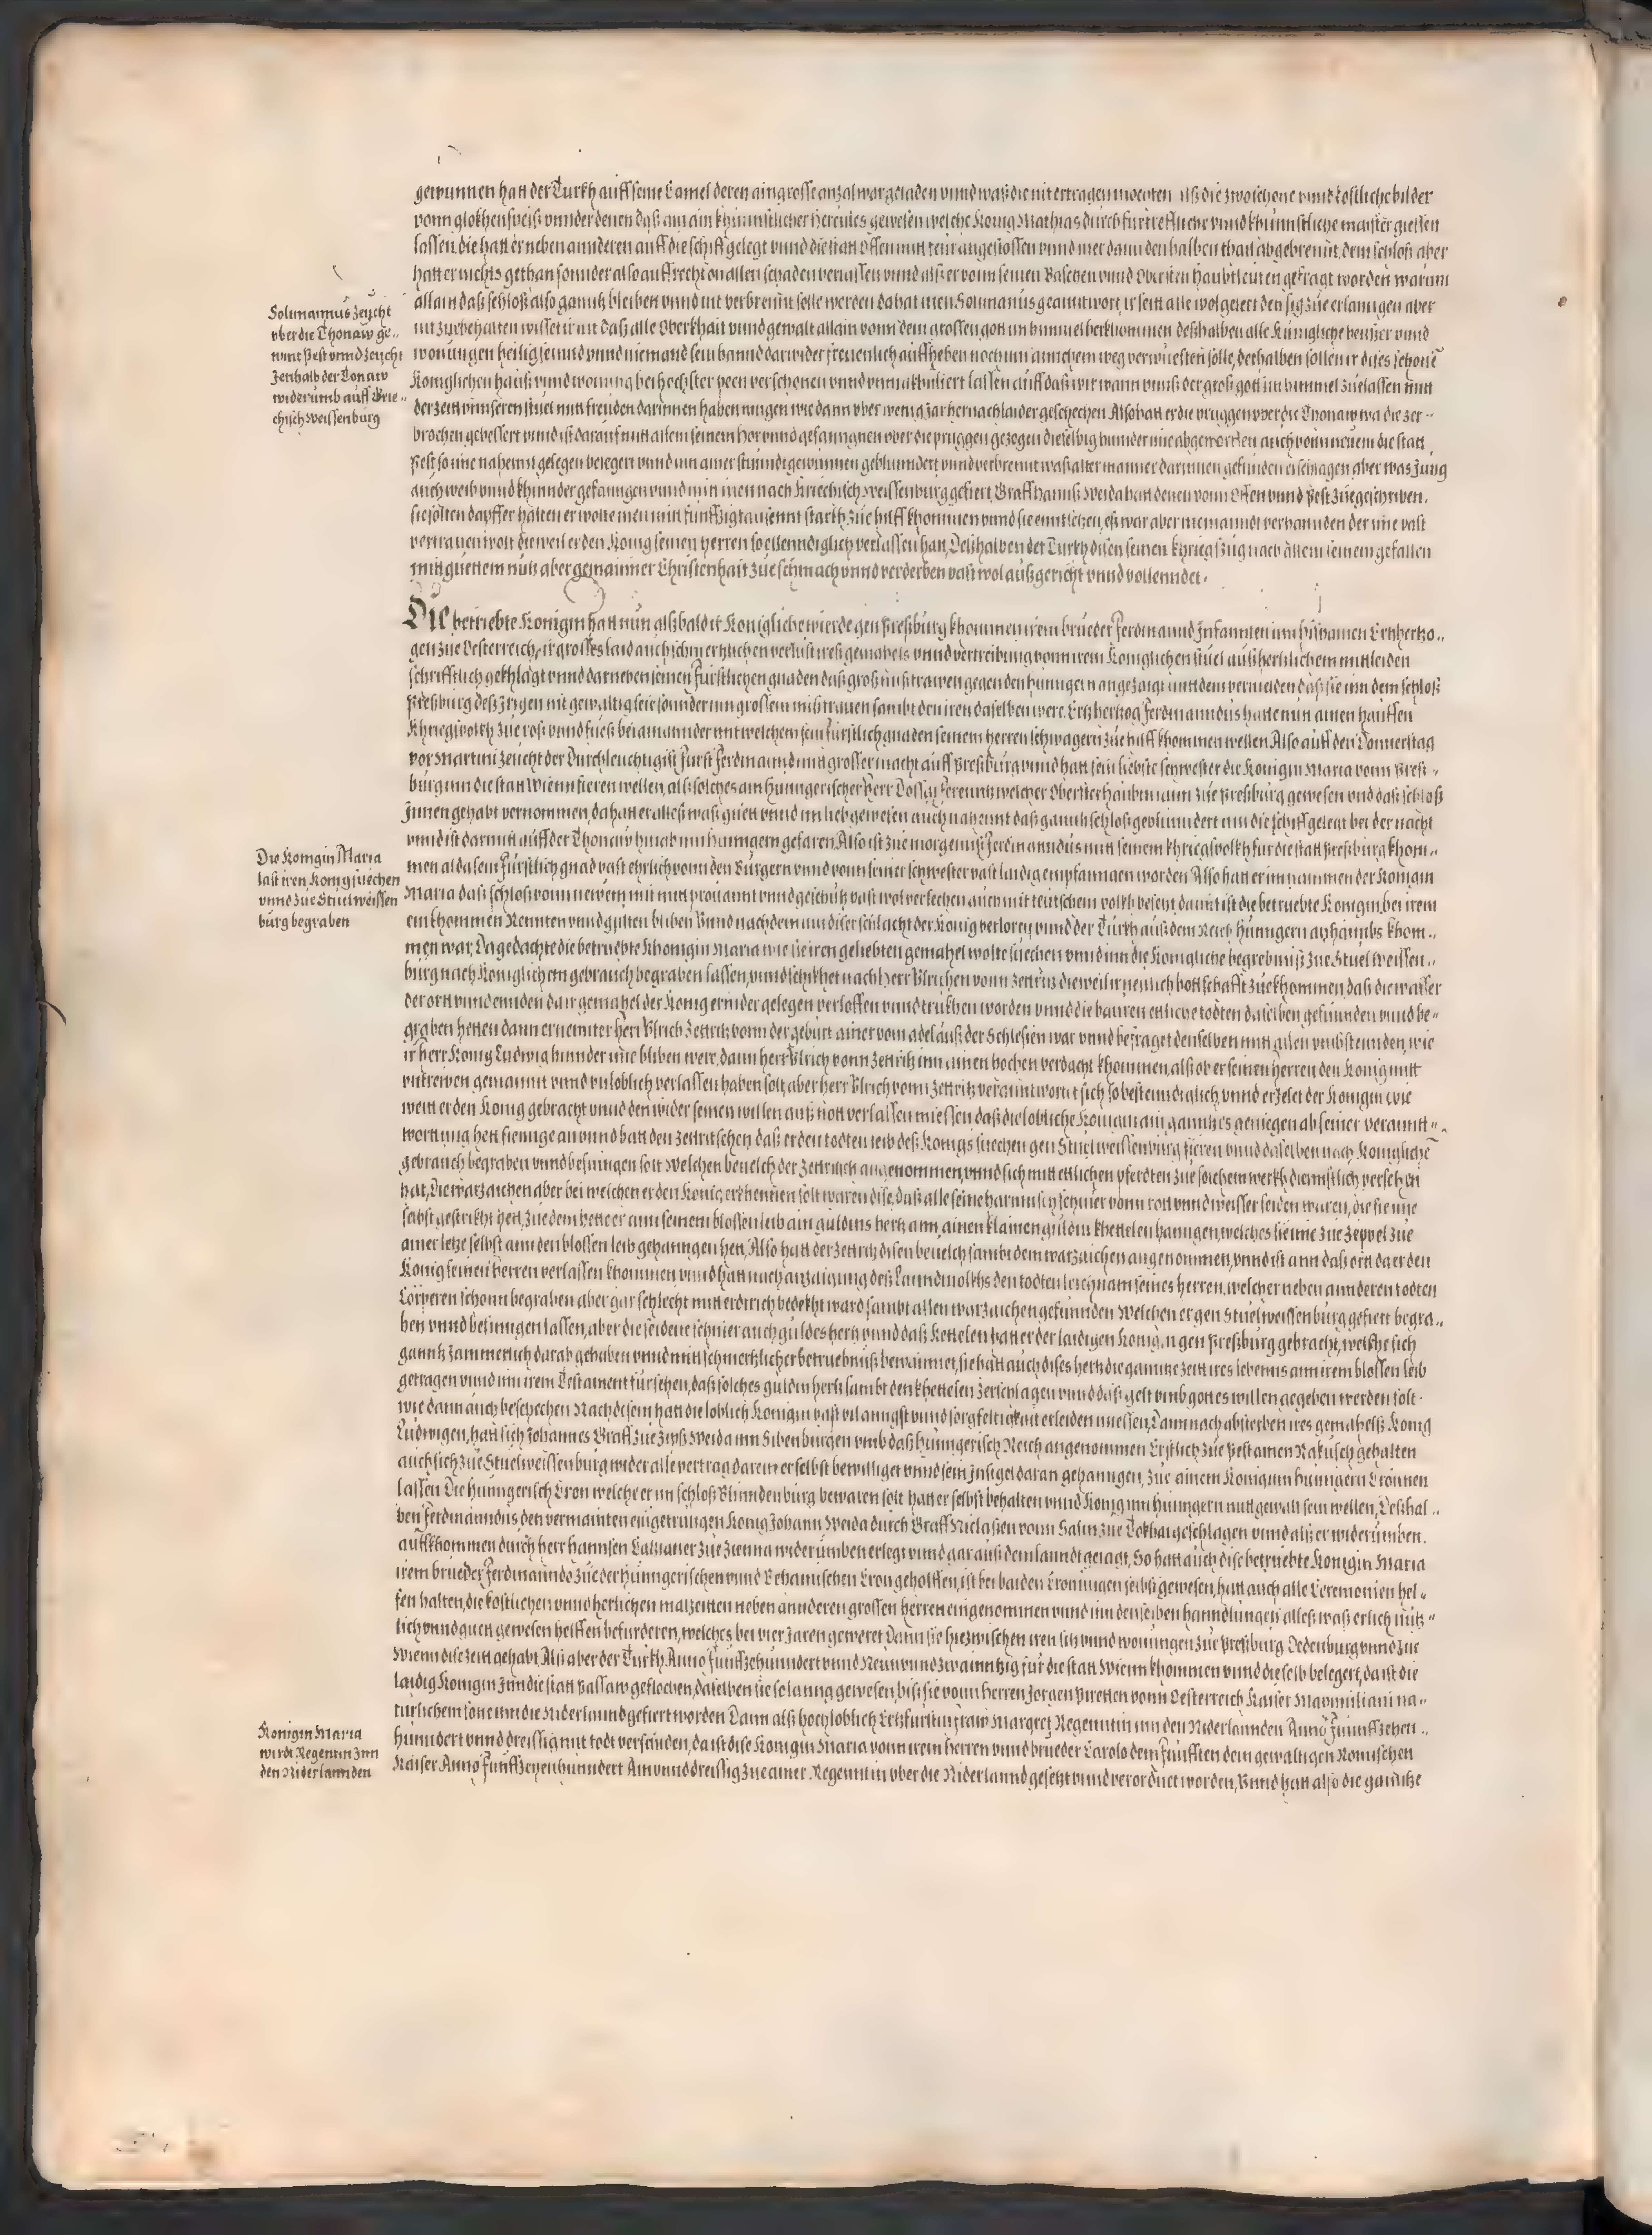 gewunnen hatt der Turkh auff seine Camel deren ain grosse anzal war geladen vnnd waß die nit ertragen mochten alß die zwo schone vnnd costliche bilder
vonn glokhenspeiß vnnder denen daß ain ain khunnstlicher Hercules gewesen welche Konig Mathias durch furtreffliche vnnd khunnstliche meister giessen
lassen die hatt er neben annderen auff die schiff gelegt vnnd die statt Offen mitt feur angestossen vnnd mer dann den halben thail abgebrennt. dem schloß aber
hatt er nichts gethan sonnder also auffrecht on allen schaden verlassen vnnd alß er vonn seinen Baschen vnnd Obersten haubtleuten gefragt worden warum
allain daß schloß also ganntz bleiben vnnd nit verbrennt solle werden da hat inen Solimanus geanntwort ir seitt alle wol gelert den sig zue erlanngen aber
nit zue behalten wisset ir nit daß alle Oberkhait vnnd gewalt allain vonn dem grossen gott im himmel herkhommen deßhalben alle Kunigliche heußer vnnd
wonungen heilig seinnd vnnd niemand sein hannd darwider freuenlich auffheben noch inn ainichem weg verwuesten solle, derhalben sollen ir dises schone
Koniglichen hauß vnnd wonung bei hochster peen verschonen vnnd vnmakuliert lassen auff daß wir wann vnnß der groß gott im himmel zuelassen mitt
der zeitt vnnseren stuel mitt freuden darinnen haben mogen wie dann vber wenig jar hernach laider geschechen Also hatt er die pruggen vber die Thonaw wa die zer-
brochen gebessert vnnd ist darauf mitt allem seinem hor vnnd gefanngnen vber die pruggen gezogen dieselbig hinnder ime abgeworffen auch vonn neuem die statt
Pest so ime nahennt gelegen belegert vnnd inn ainer stunnd gewunnen geblunndert vnnd verbrennt waß alter menner darinnen gefunden erschlagen aber was Jung
auch weib vnnd khinnder gefanngen vnnd mitt inen nach Kriechisch Weissenburg gefiert Graff Hannß Weida hatt denen vonn Offen vnnd Pest zuegeschriben,
sie solten dapffer halten er wolte inen mitt funffzigtausennt starkh zue hilff khommen vnnd sie enntsetzen, eß war aber niemanndt verhannden der ime vast
vertrauen wolt dieweil er den Konig seinen herren so ellenndiglich verlassen hatt, Deßhalben der Turkh disen seinen khriegßzug nach allem seinem gefallen
mitt guettem nutz aber gemainner Christenhait zue schmach vnnd verderben vast wol außgericht vnnd vollenndet.
Solimannus zeucht
vber die Thonaw ge-
wint Pest vnnd zeucht
Jenhalb der Tonaw
widerumb auff Krie-
chisch Weissenburg
Die betriebte Konigin hatt nun alßbald ir Konigliche wierde gen Preßburg khommen irem brueder Ferdinannd Infannten inn Hispanien Ertzhertzo-
gen zue Oesterreich, ir grosses laid auch schmertzlichen verlust ireß gemahels vnnd vertreibung vonn irem Koniglichen stuel auß hertzlichem mittleiden
schrifftlich gekhlagt vnnd darneben seinen Furstlichen gnaden daß groß mißtrawen gegen den hunngern angezaigt mitt dem vermelden daß sie inn dem schloß
Preßburg deß Jrigen nit gewaltig seie sonnder inn grossem mißtrauen sambt den iren daselben were. Ertzhertzog Ferdinanndus hatte nun ainen hauffen
Khriegsvolkh zue roß vnnd fueß bei ainannder mit welchem sein furstlich gnaden seinem herren schwagern zue hilff khommen wellen Also auff den Donnerstag
vor Martini zeucht der Durchleuchtigist Furst Ferdinannd mit grosser macht auff Preßburg vnnd hatt sein liebste schwester die Konigin Maria vonn Preß-
burg inn die statt Wienn fieren wellen, alß solches ain hunngerischer herr welcher Obrister haubtmann zue Preßburg gewesen vnnd daß schloß
Jnnen gehabt vernommen, da hatt er alleß waß guett vnnd im lieb gewesen auch nahennt daß gantz schloß geblunndert inn die schiff gelegt bei der nacht
vnnd ist darmitt auff der Thonaw hinab inn hunngern gefaren. Also ist zue morgenns Ferdinanndus mitt seinem khriegsvolkh fur die statt Preßburg khom-
men alda sein Furstlich gnad vast ehrlich vonn den Burgern vnnd vonn seiner schwester vast laidig empfanngen worden Also hatt er im nammen der Konigin
Maria daß schloß vonn newem mit mitt profiannt vnnd geschutz vast wol versechen auch mit teutschem volkh besetzt damit ist die betruebte Konigin, bei irem
einkhommen Rennten vnnd gulten bliben Vnnd nachdem inn diser schlacht der Konig verloren vnnd der Turkh auß dem Reich hunngern anhaimbs khom-
men war, Da gedachte die betruebte Khonigin Maria wie sie iren geliebten gemahel wolte suechen vnnd inn die Konigliche begrebnuß zue Stuel Weissen-
burg nach Koniglichem gebrauch begraben lassen, vnnd schikhet nach Herr Vlrichen vonn Zettritz dieweil ir neulich bottschafft zuekhommen, daß die wasser
der ort vnnd ennden da ir gemahel der Konig ernider gelegen verloffen vnnd trukhen worden vnnd die bauren ettliche todten daselben gefunnden vnnd be-
graben hetten dann ernennter herr Vlrich Zettritz vonn der geburt ainer vom adel auß der Schlesien war vnnd befraget denselben mitt allen vmbstennden, wie
ir herr Konig Ludwig hinnder ime bliben were, dann herr Vlrich vonn Zettritz inn ainen hochen verdacht khommen, alß ob er seinen herren den Konig mitt
vntrewen gemainnt vnnd vnloblich verlassen haben solt, aber herr Vlrich vonn Zettritz verantwort sich so bestenndiglich vnnd erzelet der Konigin wie
weitt er den Konig gebracht vnnd den wider seinen willen auß nott verlassen miessen daß die lobliche Konigin ain ganntzes geniegen ab seiner verannt-
worttung hett fienge an vnnd batt den Zettritschen daß er den todten leib deß Konigs suechen gen Stuel weissenburg fieren vnnd daselben nach Konigliche
gebrauch begraben vnnd besinngen solt welchen beuelch der Zettritsch angenommen, vnnd sich mitt ettlichen pferdten zue solchem werkh dienstlich versechen
hat, Die warzaichen aber bei welchen er den Konig erkhennen solt waren dise, daß alle seine harnnisch schnier vonn rott vnnd weisser seiden waren, die sie ime
selbst gestrikht hett, zue dem hette er ann seinem blossen leib ain guldins hertz ann, ainen klainen guldin khettelen hanngen, welches sie ime zue Zeppel zue
ainer letze selbst ann den blossen leib gehanngen hett, Also hatt der Zettritz disen beuelch sambt dem warzaichen angenommen, vnnd ist ann daß ort da er den
Konig seinen herren verlassen khommen vnnd hatt nach anzaigung deß Lanndtvolkhs den todten leichnam seines herren, welcher neben annderen todten
Corperen schonn begraben aber gar schlecht mitt erdtrich bedekht ward sambt allen warzaichen gefunnden Welchen er gen Stuelweissenburg gefiert begra-
ben vnnd besinngen lassen, aber die seidene schnier auch guldes hertz vnnd daß Kettelen hatt er der laidigen Konigin gen Preßburg gebracht, welche sich
ganntz Jammerlich darab gehaben vnnd mitt schmertzlicher betruebnuß bewainnet, sie hatt auch dises hertz die ganntze zeitt ires lebenns ann irem blossen leib
getragen vnnd inn irem Testament fursehen, daß solches guldin hertz sambt den khettelen zerschlagen vnnd daß gelt vmb gottes willen gegeben werden solt.
wie dann auch beschechen Nach disem hatt die loblich Konigin vast vil anngst vnnd sorgfeltigkait erleiden miessen, Dann nach absterben ires gemahelß Konig
Ludwigen, hatt sich Johannes Graff zue Zips Weida inn Sibenburgen vmb daß Hunngerisch Reich angenommen Erstlich zue Pest ainen Rakusch gehalten
auch sich zue Stuelweissenburg wider alle vertrag darein er selbst bewilliget vnnd sein Insigel daran gehanngen, zue ainem Konig inn hunngern Cronnen
lassen Die Hunngerisch Cron welche er im schloß Blinndenburg bewaren solt hatt er selbst behalten vnnd Konig inn hunngern mitt gewalt sein wellen, Deßhal-
ben Ferdinanndus den vermainten eingetrungen Konig Johann Weida durch Graff Niclassen vonn Salm zue Tokhai geschlagen vnnd alß er widerumben.
auffkhommen durch herr Hannsen Catzianer zue Zienna widerumben erlegt vnnd gar auß dem lanndt gejagt, So hatt auch dise betruebte Konigin Maria
irem brueder Ferdinanndo zue der hunngerischen vnnd Behamischen Cron geholffen, ist bei baiden Cronungen selbst gewesen, hatt auch alle Ceremonien hel-
fen halten, die kostlichen vnnd herlichen malzeitten neben annderen grossen herren eingenommen vnnd inn denselben hanndlungen alleß waß erlich nutz-
lich vnnd guett gewesen helffen befurderen, welches bei vier Jaren geweret Dann sie hiezwischen iren sitz vnnd wonungen zue Preßburg Oedenburg vnnd zue
Wienn dise zeitt gehabt, Alß aber der Turkh Anno Funffzehunndert vnnd Neun vnnd zwainntzig fur die statt Wienn khommen vnnd die selb belegert, da ist die
laidig Konigin Jnn die statt Passaw geflochen, daselben sie so lanng gewesen, biß sie vonn Herren Jorgen vonn Oesterreich Kaiser Maximiliani na-
turlichem sone inn die Niderlannd gefiert worden Dann alß hochloblich Ertzfurstin fraw Margret Regenntin inn den Niderlannden Anno Funnffzehen-
hunndert vnnd dreissig mit todt verschiden, da ist dise Konigin Maria vonn irem herren vnnd brueder Carolo dem Funfften dem gewaltigen Romischen
Kaiser Anno Funffzehenhunndert Ain vnnd dreissig zue ainer Regenntin vber die Niderlannd gesetzt vnnd verordnet worden, Vnnd hatt also die ganntze
Die Konigin Maria
last iren Konig suechen
vnnd zue Stuel weissen
burg begraben
Konigin Maria
wirdt Regentin Jnn
den Niderlannden